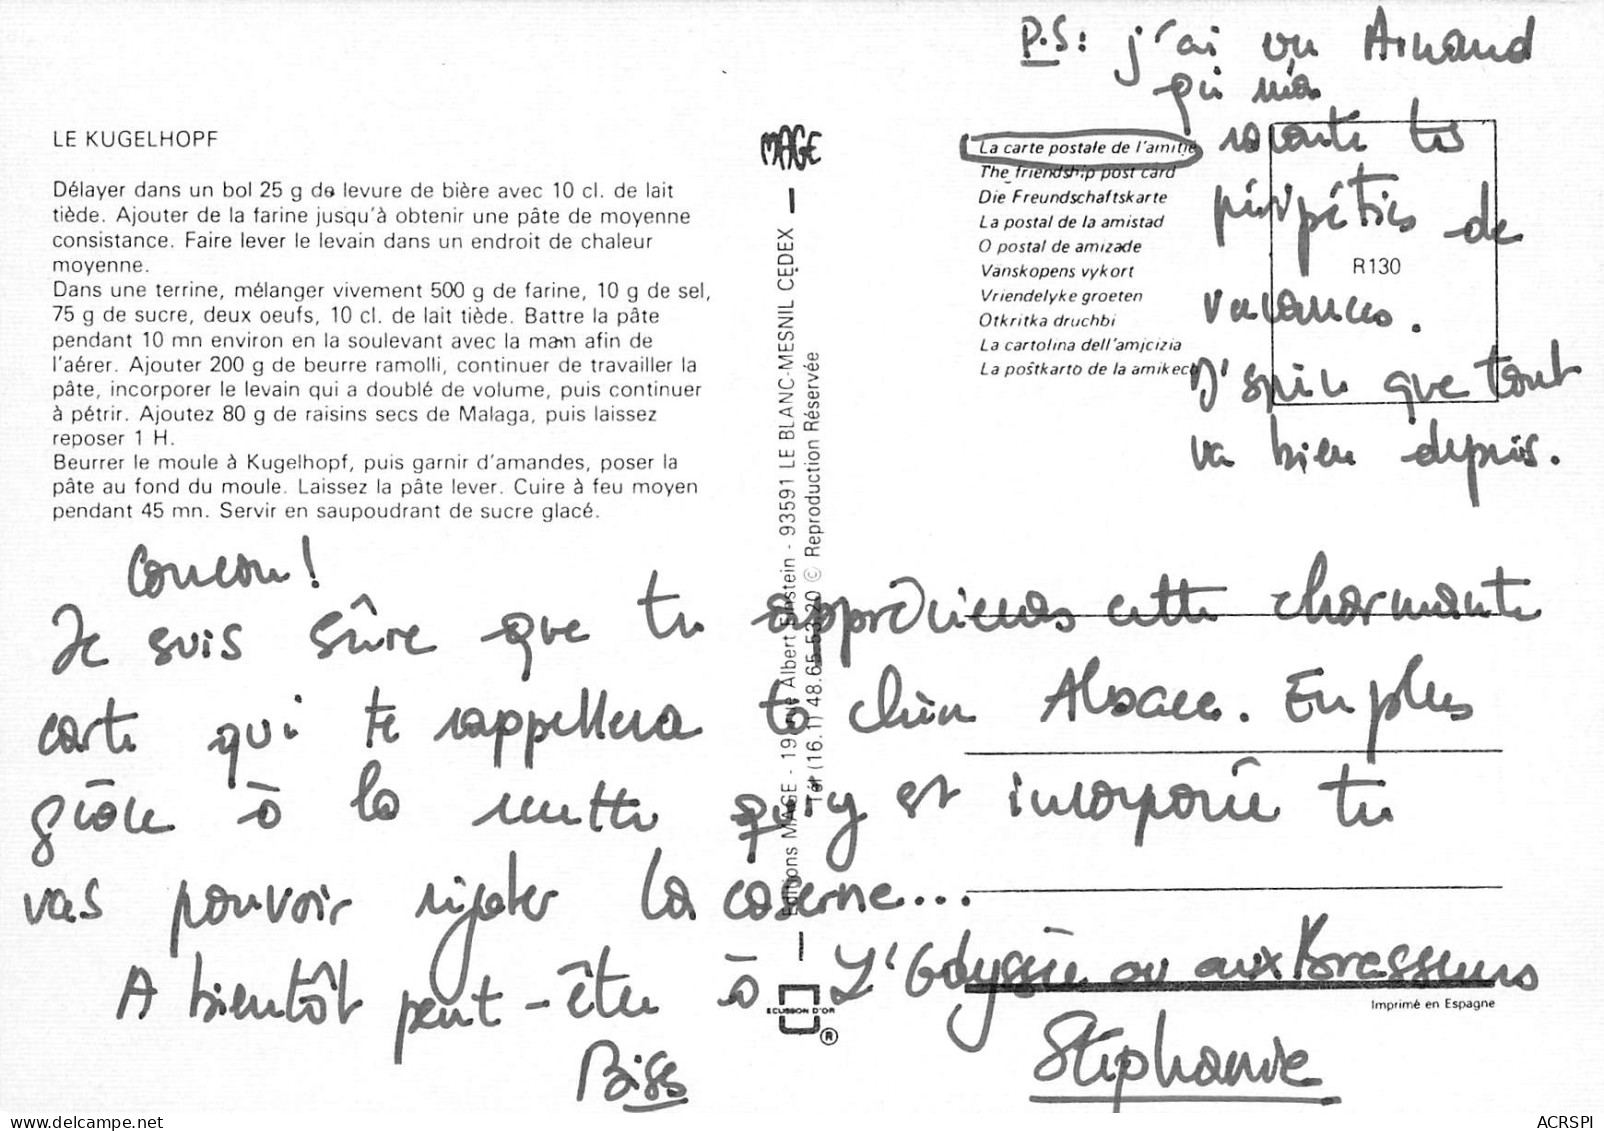 P.S: j'ai vu Arnaud
qui m'a
raconté tes
péripéties de
vacances.
J'espère que tout
va bien depuis.
LE KUGELHOPF
Délayer dans un bol 25 g de levure de bière avec 10 cl. de lait
tiède. Ajouter de la farine jusqu'à obtenir une pâte de moyenne
consistance. Faire lever le levain dans un endroit de chaleur
moyenne.
Dans une terrine, mélanger vivement 500 g de farine, 10 g de sel,
75 g de sucre, deux oeufs, 10 cl. de lait tiède. Battre la pâte
pendant 10 mn environ en la soulevant avec la main afin de
l'aérer. Ajouter 200 g de beurre ramolli, continuer de travailler la
pâte, incorporer le levain qui a doublé de volume, puis continuer
à pétrir. Ajoutez 80 g de raisins secs de Malaga, puis laissez
reposer 1 H.
Beurrer le moule à Kugelhopf, puis garnir d'amandes, poser la
pâte au fond du moule. Laissez la pâte lever. Cuire à feu moyen
pendant 45 mn. Servir en saupoudrant de sucre glacé.
MAGE
Editions MAGE - 19, rue Albert Einstein - 93591 LE BLANC-MESNIL CEDEX
Tél (16.1) 48.65.53.20 © Reproduction Réservée
ECUSSON D'OR
®
La carte postale de l'amitié
The friendship post card
Die Freundschaftskarte
La postal de la amistad
O postal de amizade
Vanskopens vykort
Vriendelyke groeten
Otkritka druchbi
La cartolina dell'amicizia
La poŝtkarto de la amikeco
R130
Coucou!
Je suis sûre que tu apprécieras cette charmante
carte qui te rappellera ta chère Alsace. En plus
grâce à la recette qui y est incorporée tu
vas pouvoir régaler la caserne...
A bientôt peut-être à L'Odyssée ou aux Brasseurs
Biss
Stéphanie
Imprimé en Espagne
ACRSPI